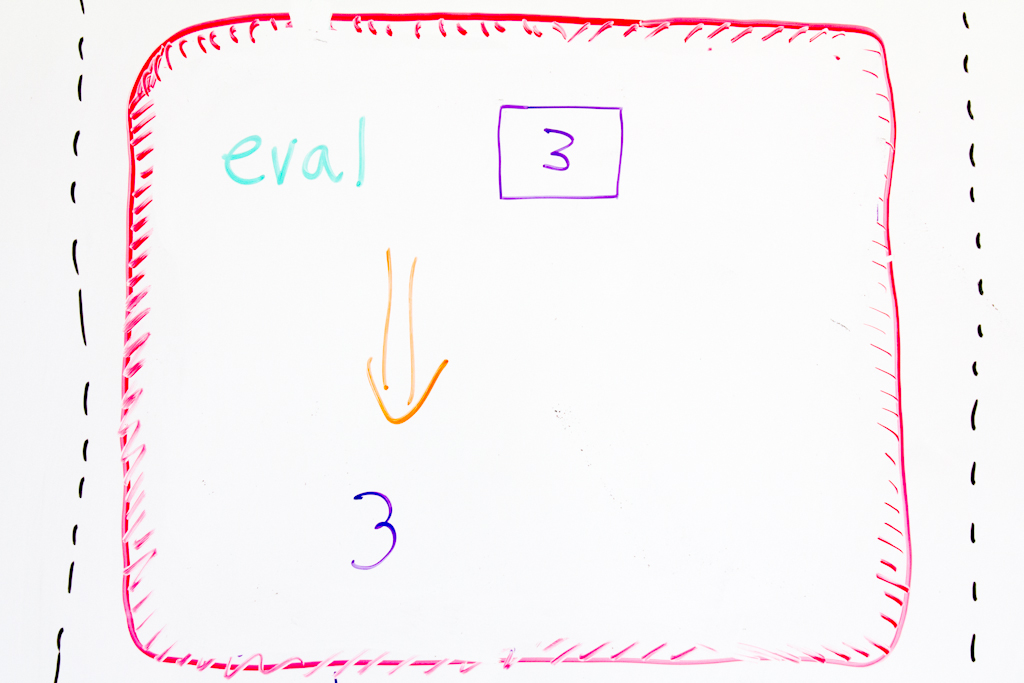 eval 3
3